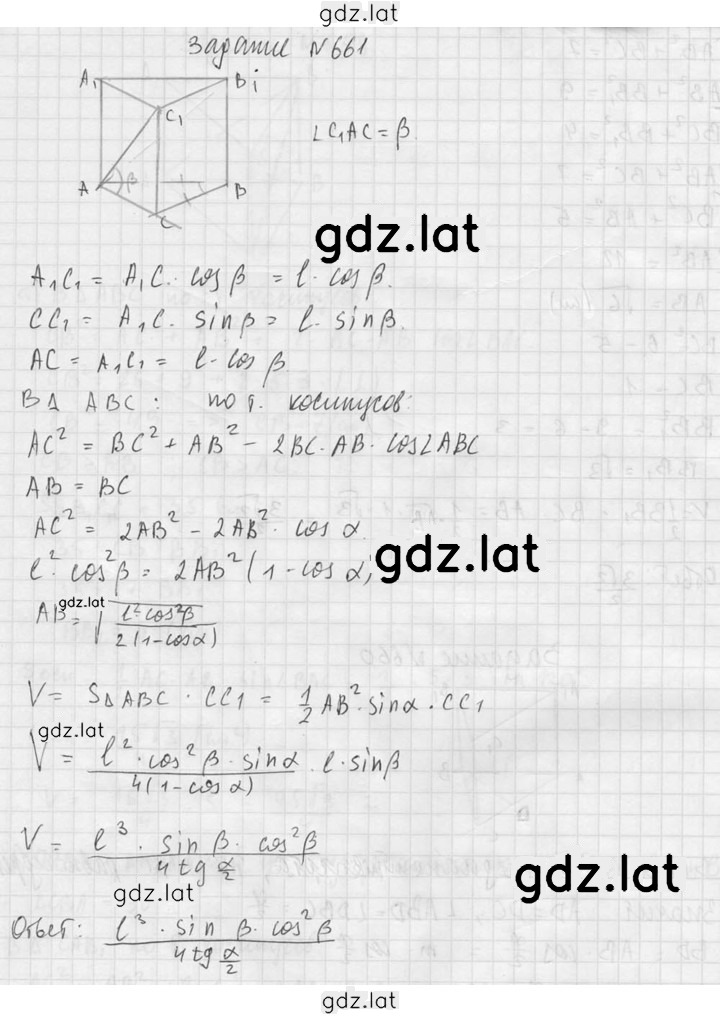 gdz.lat
Задание №661
A₁ B₁
C₁
∠C₁AC = β.
A β B
C
gdz.lat
A₁C₁ = A₁C · cos β = l · cos β.
CC₁ = A₁C · sin β = l · sin β.
AC = A₁C₁ = l · cos β
В Δ ABC : по т. косинусов:
AC² = BC² + AB² - 2BC · AB · cos∠ABC
AB = BC
AC² = 2AB² - 2AB² · cos α.
gdz.lat
l² · cos²β = 2AB² (1 - cos α)
gdz.lat
AB = √(l² · cos²β / 2(1 - cos α))
V = SΔABC · CC1 = 1/2 AB² · sin α · CC1
gdz.lat
V = l² · cos²β · sin α / 4(1 - cos α) · l · sin β
V = l³ · sin β · cos²β / 4 tg α/2
gdz.lat
gdz.lat
Ответ: l³ · sin β · cos²β / 4 tg α/2
gdz.lat